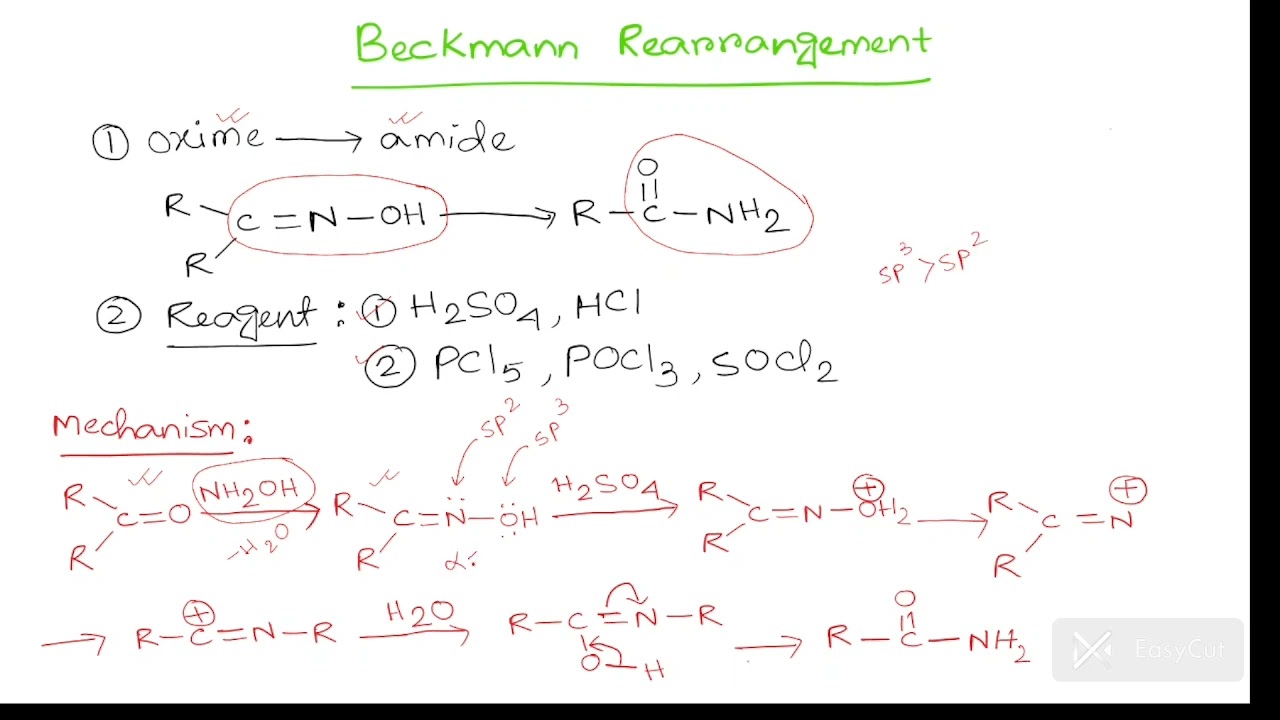 Beckmann Rearrangement
① oxime ⟶ amide
R R C = N – OH ⟶ R – C – NH2 O
sp3 > sp2
② Reagent : ① H2SO4, HCl
② PCl5, POCl3, SOCl2
Mechanism:
sp2 sp3
R R C = O NH2OH –H2O ⟶ R R C = N – OH H2SO4 ⟶ R R C = N – OH2 ⊕ ⟶ R R C = N ⊕
⟶ R – C = N – R ⊕ H2O ⟶ R – C = N – R O H ⟶ R – C – NH2 O
EasyCut